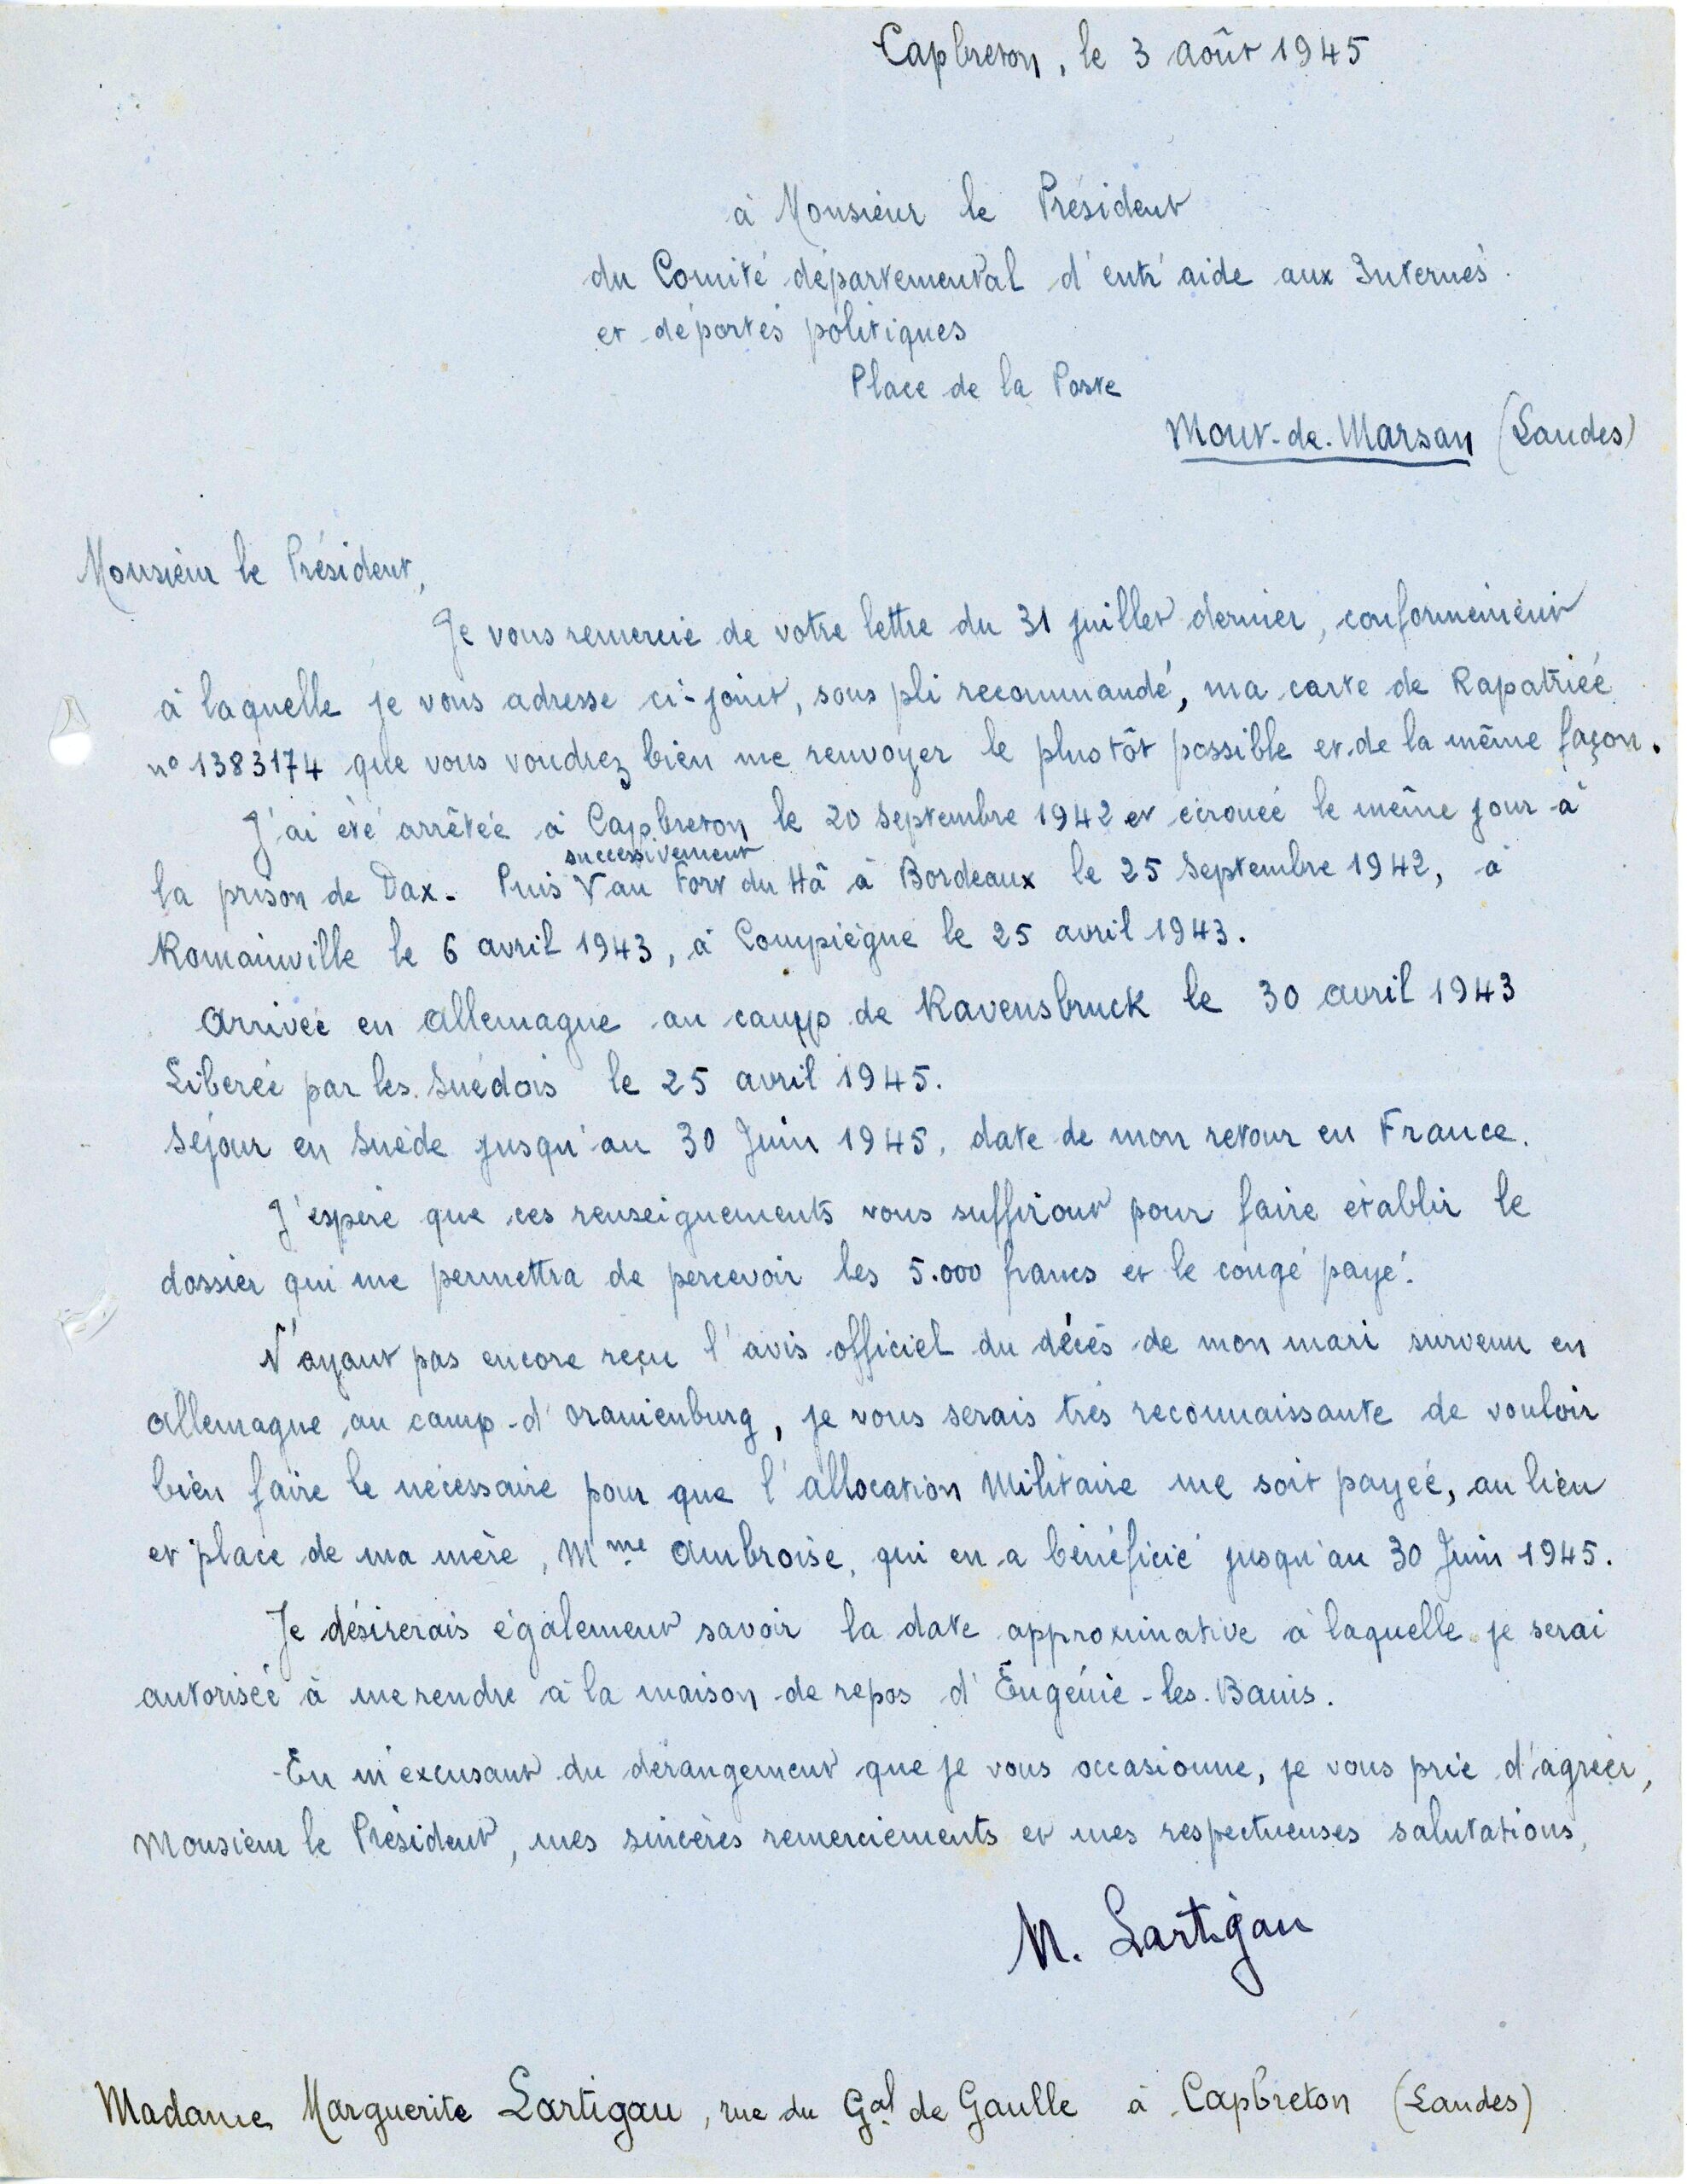 Capbreton, le 3 Août 1945
à Monsieur le Président
du Comité départemental d'entr'aide aux Internés
et déportés politiques
Place de la Poste
Mont-de-Marsan (Landes)
Monsieur le Président,
Je vous remercie de votre lettre du 31 juillet dernier, conformément
à laquelle je vous adresse ci-joint, sous pli recommandé, ma carte de Rapatriée
n° 1383174 que vous voudrez bien me renvoyer le plus tôt possible et de la même façon.
J'ai été arrêtée à Capbreton le 20 Septembre 1942 et écrouée le même jour à
successivement
la prison de Dax. Puis V au Fort du Hâ à Bordeaux le 25 Septembre 1942, à
Romainville le 6 avril 1943, à Compiègne le 25 avril 1943.
Arrivée en Allemagne au camp de Ravensbruck le 30 avril 1943
Liberée par les Suédois le 25 avril 1945.
Séjour en Suède jusqu'au 30 Juin 1945, date de mon retour en France.
J'espère que ces renseignements vous suffiront pour faire établir le
dossier qui me permettra de percevoir les 5.000 francs et le congé payé.
N'ayant pas encore reçu l'avis officiel du décès de mon mari survenu en
Allemagne au camp d'Oranienburg, je vous serais très reconnaissante de vouloir
bien faire le nécessaire pour que l'Allocation Militaire me soit payée, au lieu
et place de ma mère, Mme Ambroise, qui en a bénéficié jusqu'au 30 Juin 1945.
Je désirerais également savoir la date approximative à laquelle je serai
autorisée à me rendre à la maison de repos d'Eugénie-les-Bains.
En m'excusant du dérangement que je vous occasionne, je vous prie d'agréer,
Monsieur le Président, mes sincères remerciements et mes respectueuses salutations,
M. Lartigau
Madame Marguerite Lartigau, rue du Gal de Gaulle à Capbreton (Landes)